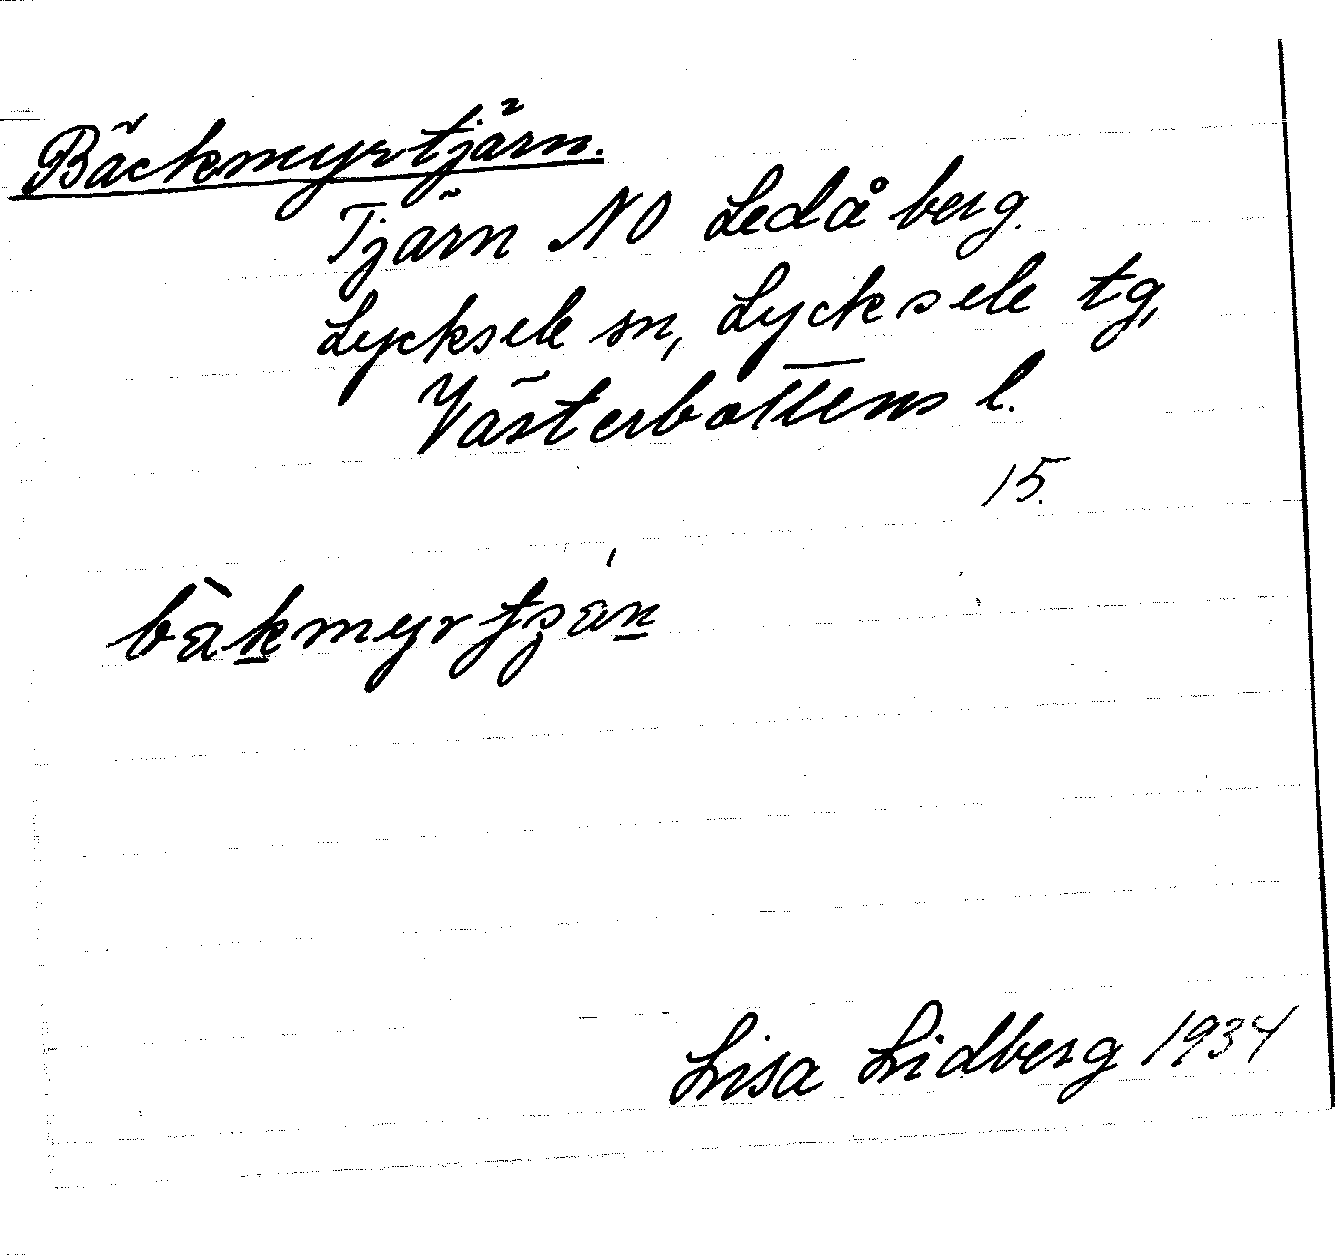 Bäckmyrtjärn.
Tjärn NO Ledåberg.
Lycksele sn, Lycksele tg,
Västerbottens l.
15.
bàkmyrtján
Lisa Lidberg 1934